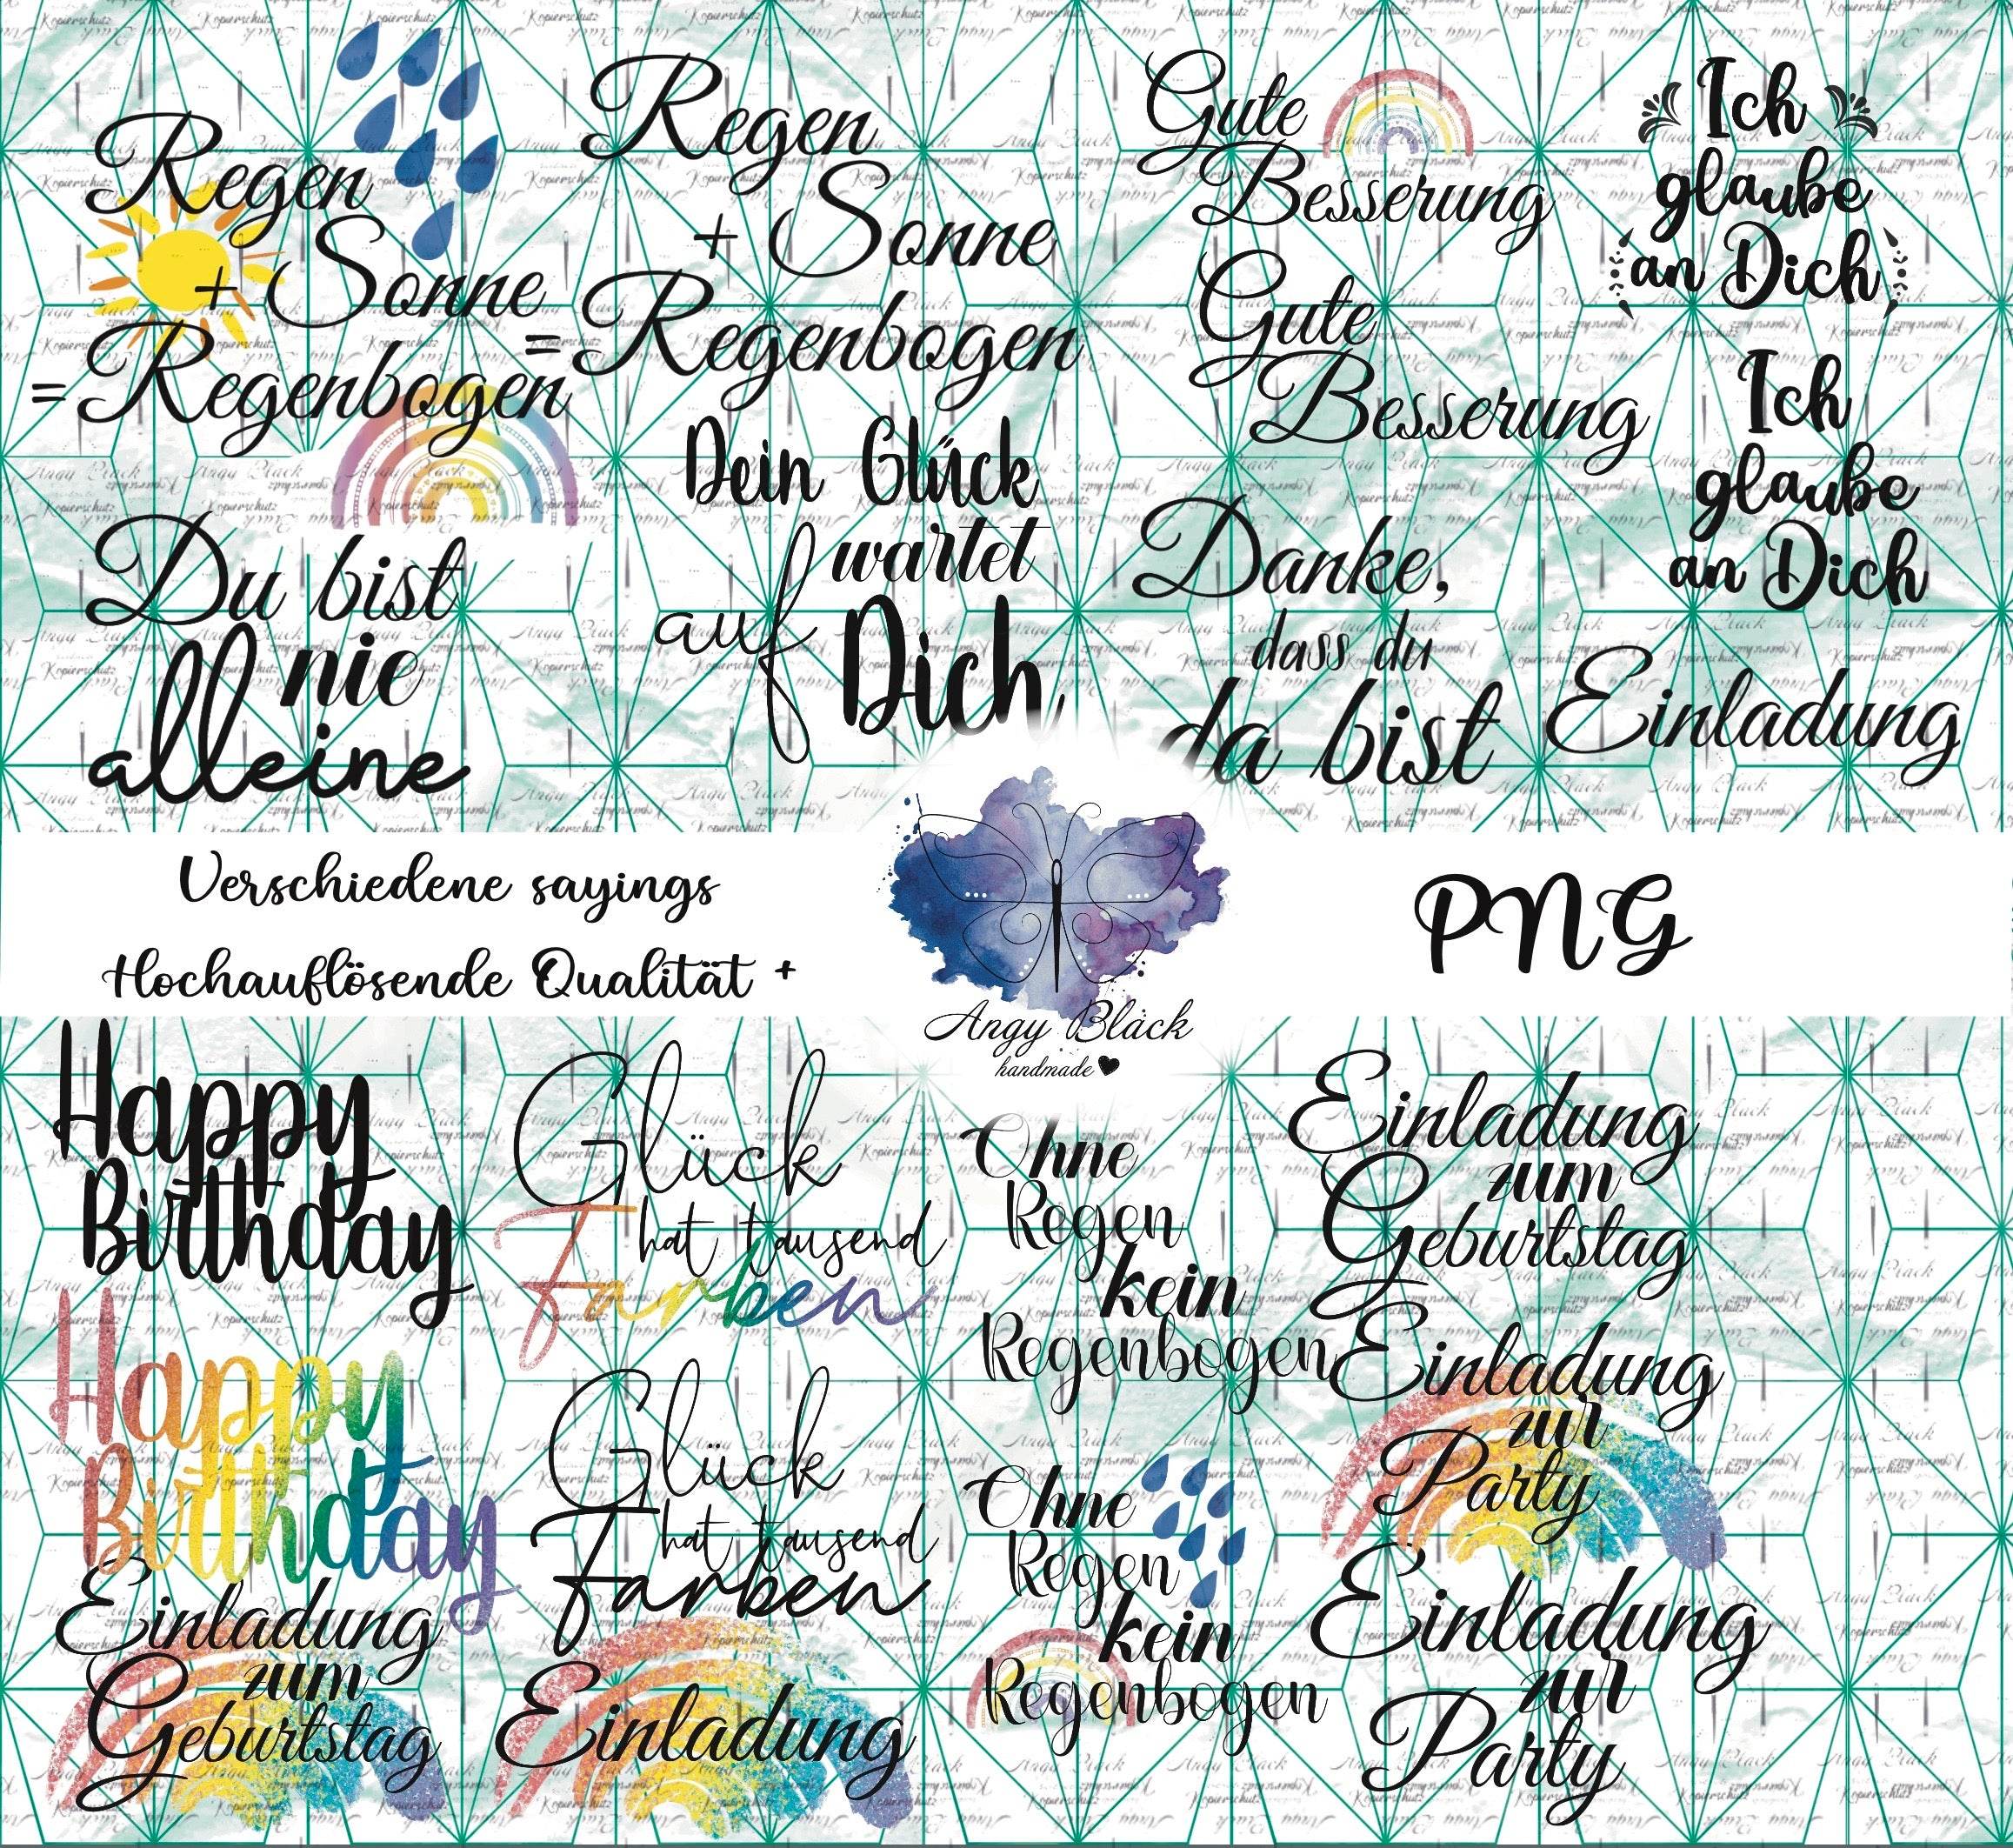 Regen
+ Sonne
= Regenbogen
Regen
+ Sonne
= Regenbogen
Gute
Besserung
Ich
glaube
an Dich
Gute
Besserung
Ich
glaube
an Dich
Du bist
nie
alleine
Dein Glück
wartet
auf
Dich
Danke,
dass du
da bist
Einladung
Verschiedene sayings
Hochauflösende Qualität +
Angy Black
handmade
PNG
Happy
Birthday
Glück
hat tausend
Farben
Ohne
Regen
kein
Regenbogen
Einladung
zum
Geburtstag
Happy
Birthday
Glück
hat tausend
Farben
Ohne
Regen
kein
Regenbogen
Einladung
zur
Party
Einladung
zum
Geburtstag
Einladung
Einladung
zur
Party
Angy Black
Kopierschutz